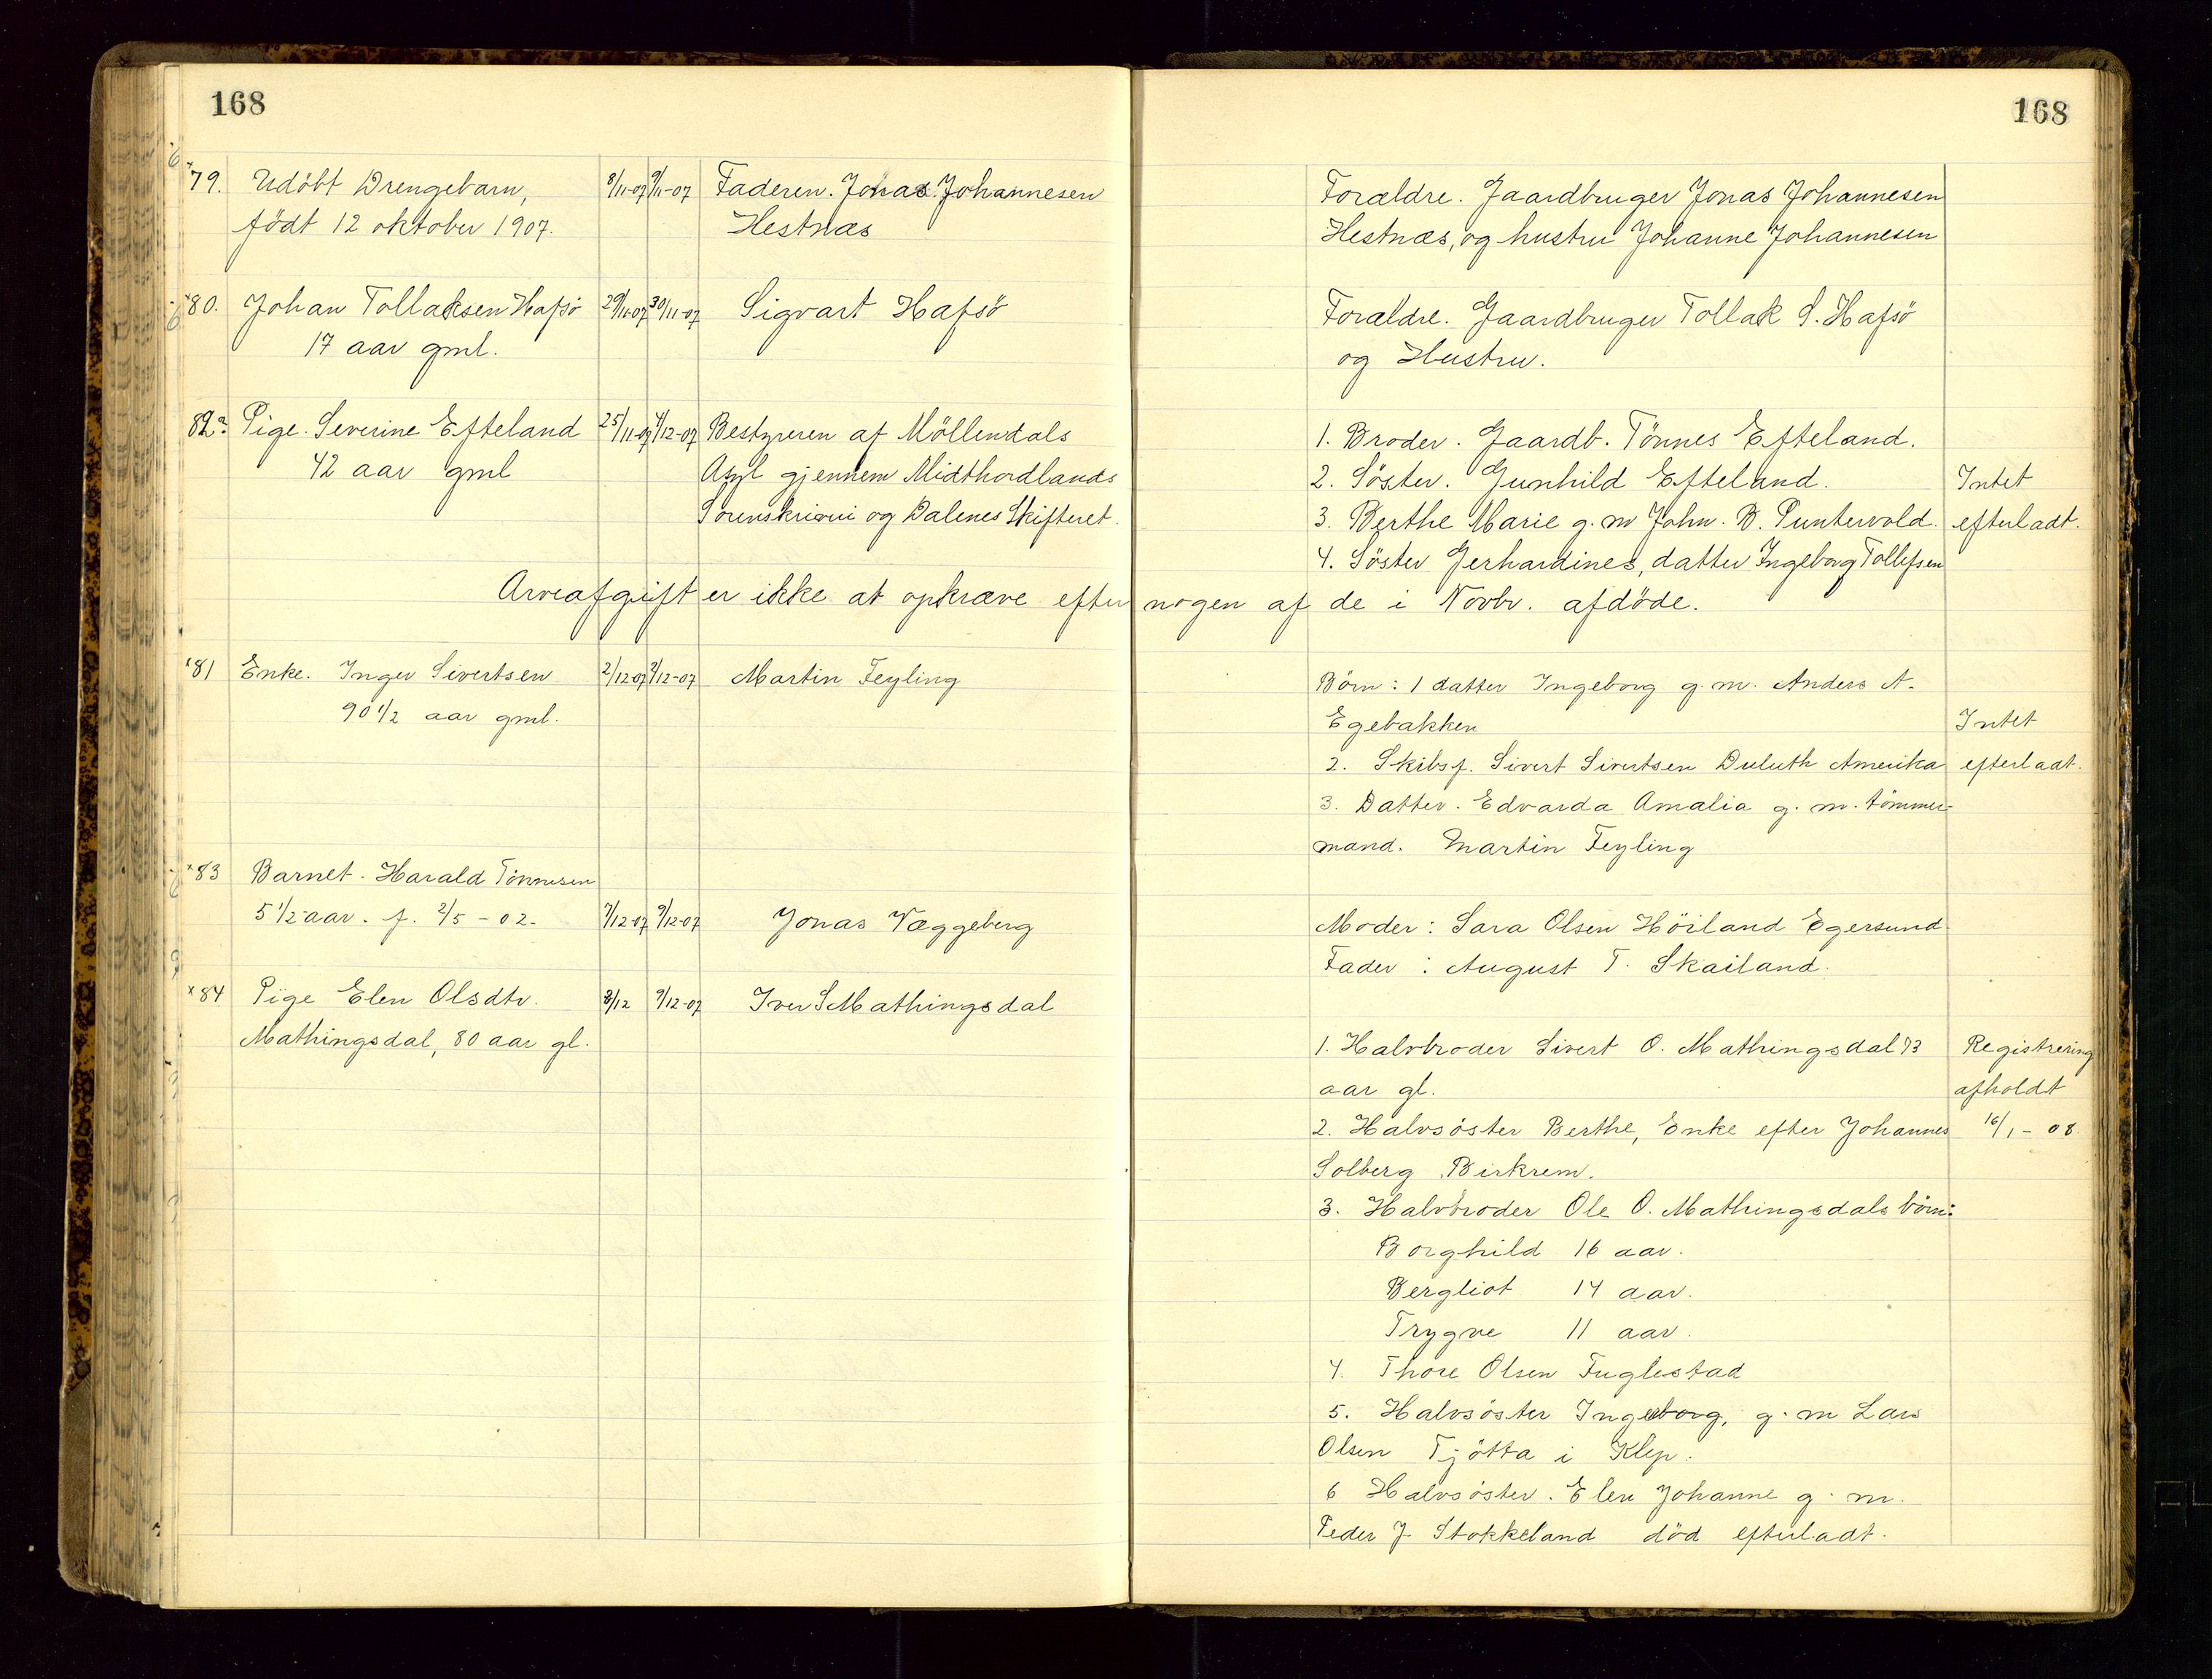 168
79. Udöbt Drengebarn, 8/11-07 9/11-07 Faderen. Jonas Johannesen
födt 12 oktober 1907. Hestnæs
80. Johan Tollaksen Hafsö 29/11-07 30/11-07 Sigvart Hafsö
17 aar gml.
82 Pige. Severine Efteland 25/11-07 4/12-07 Bestyreren af Möllendals
42 aar gml Asyl gjennem Midthordlands
Sorenskriveri og Dalenes Skifteret.
Arveafgift er ikke at opkræve efter nogen af de i Novbr. afdöde.
81 Enke. Inger Sivertsen 2/12-07 /12-07 Martin Feyling
90 1/2 aar gml.
83 Barnet. Harald Tönnesen
5 1/2 aar. f. 2/5-02. 7/12-07 9/12-07 Jonas Væggeberg
84 Pige Elen Olsdtr. 8/12 9/12-07 Iver S Mathingsdal
Mathingsdal, 80 aar gl.
168
Forældre. Gaardbruger Jonas Johannesen
Hestnæs, og hustru Johanne Johannesen
Forældre. Gaardbruger Tollak S. Hafsö
og Hustru.
1. Broder. Gaardb. Tönnes Efteland.
2. Söster. Gunhild Efteland. Intet
3. Berthe Marie g. m John. B. Puntervold. efterladt.
4. Söster Gerhardines, datter Ingeborg Tollefsen
Börn: 1 datter Ingeborg g. m. Anders A.
Egebakken Intet
2. Skibsf. Sivert Sivertsen Duluth Amerika efterladt.
3. Datter. Edvarda Amalia g. m. tömmer-
mand. Martin Feyling
Moder: Sara Olsen Höiland Egersund.
Fader: August T. Skailand.
1. Halvbroder Sivert O. Mathingsdal 73 Registrering
aar gl. afholdt
2. Halvsöster Berthe, Enke efter Johannes 16/1-08.
Solberg Birkrem.
3. Halvbroder Ole O. Mathingsdals börn:
Borghild 16 aar.
Bergliot 14 aar.
Trygve 11 aar.
4. Thore Olsen Fuglestad
5. Halvsöster Ingeborg, g. m Lars
Olsen Tjötta i Klep.
6 Halvsöster. Elen Johanne g. m.
Peder J. Stokkeland död efterladt.